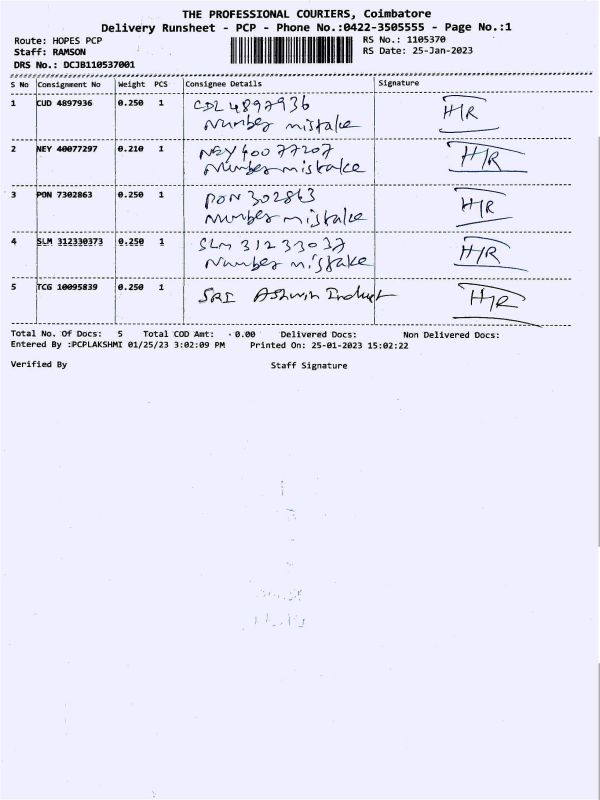 THE PROFESSIONAL COURIERS, Coimbatore
Delivery Runsheet - PCP - Phone No.:0422-3505555 - Page No.:1
Route: HOPES PCP
Staff: RAMSON
DRS No.: DCJB110537001
RS No.: 1105370
RS Date: 25-Jan-2023
S No Consignment No Weight PCS Consignee Details Signature
1 CUD 4897936 0.250 1 CDL 4897936 H/R
Number mistake
2 NEY 40077297 0.210 1 NEY 40077207 H/R
Number mistake
3 PON 7302863 0.250 1 PON 302863 H/R
Number mistake
4 SLM 312330373 0.250 1 SLM 31233037 H/R
Number mistake
5 TCG 10095839 0.250 1 SRI Ashwin Indust H/R
Total No. Of Docs: 5 Total COD Amt: 0.00 Delivered Docs: Non Delivered Docs:
Entered By :PCPLAKSHMI 01/25/23 3:02:09 PM Printed On: 25-01-2023 15:02:22
Verified By Staff Signature